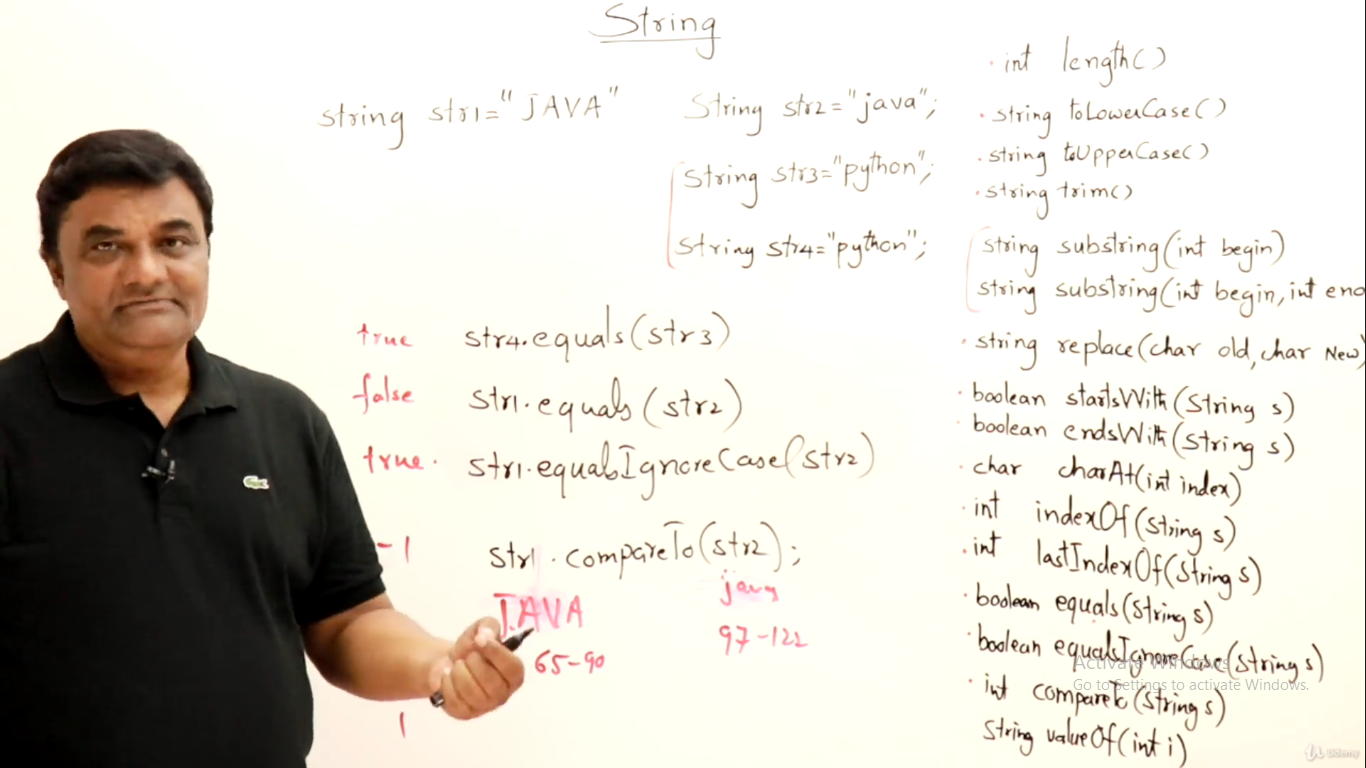 String
string str1="JAVA"
String str2="java";
String str3="python";
String str4="python";
true str4.equals(str3)
false str1.equals(str2)
true. str1.equalsIgnoreCase(str2)
-1 str1.compareTo(str2);
JAVA java
65-90 97-122
1
int length()
string toLowerCase()
string toUpperCase()
string trim()
string substring(int begin)
string substring(int begin, int end
string replace(char old, char New)
boolean startsWith(String s)
boolean endsWith(String s)
char charAt(int index)
int indexOf(String s)
int lastIndexOf(String s)
boolean equals(String s)
boolean equalsIgnoreCase(String s)
int compareTo(String s)
String valueOf(int i)
Activate Windows
Go to Settings to activate Windows.
Udemy